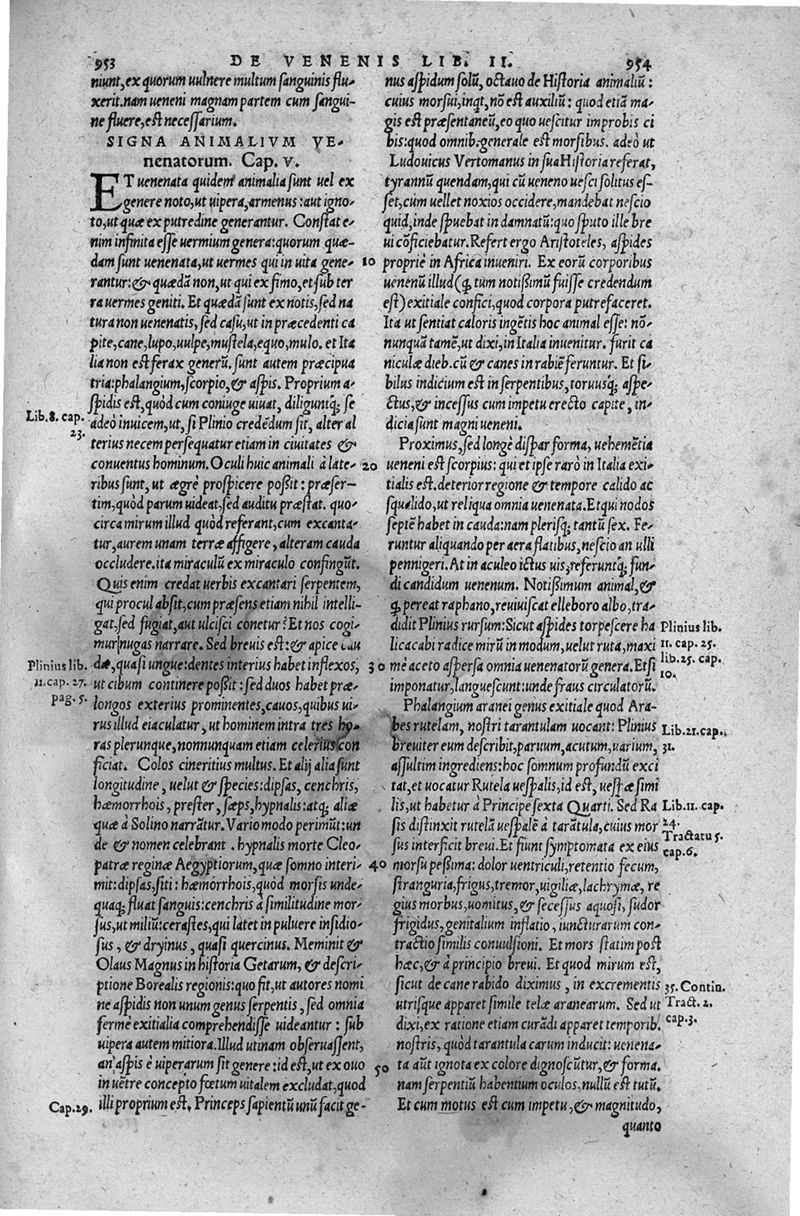 953
DE VENENIS LIB. II.
954
niunt, ex quorum uulnere multum sanguinis flu-
xerit. nam ueneni magnam partem cum sangui-
ne fluere, est necessarium.
SIGNA ANIMALIVM VE-
nenatorum. Cap. V.
ET uenenata quidem animalia sunt uel ex
genere noto, ut uipera, armenus: aut igno-
to, ut quæ ex putredine generantur. Constat e-
nim infinita esse uermium genera: quorum quæ-
dam sunt uenenata, ut uermes qui in uita gene-
rantur: & quædã non, ut qui ex fimo, et sub ter
ra uermes geniti. Et quædã sunt ex notis, sed na
tura non uenenatis, sed casu, ut in præcedenti ca
pite, cane, lupo, uulpe, mustela, equo, mulo. et Ita
lia non est ferax generũ. sunt autem præcipua
tria: phalangium, scorpio, & aspis. Proprium a-
spidis est, quòd cum coniuge uiuat, diliguntq́; se
adeò inuicem, ut, si Plinio credẽdum sit, alter al
terius necem persequatur etiam in ciuitates &
conuentus hominum. Oculi huic animali à late-
ribus sunt, ut ægrè prospicere poßit: præser-
tim, quòd parum uideat, sed auditu præstat. quo-
circa mirum illud quòd referant, cum excanta-
tur, aurem unam terræ affigere, alteram cauda
occludere. ita miraculũ ex miraculo confingũt.
Quis enim credat uerbis excantari serpentem,
qui procul absit, cum præsens etiam nihil intelli-
gat, sed fugiat, aut ulcisci conetur? Et nos cogi-
mur nugas narrare. Sed breuis est: & apice cau
dæ, quasi ungue: dentes interius habet inflexos,
ut cibum continere poßit: sed duos habet præ-
longos exterius prominentes, cauos, quibus ui-
rus illud eiaculatur, ut hominem intra tres ho-
ras plerunque, nonnunquam etiam celerius con
ficiat. Colos cineritius multus. Et alij alia sunt
longitudine, uelut & species: dipsas, cenchris,
hæmorrhois, prester, sæps, hypnalis: atq; aliæ
quæ à Solino narrãtur. Vario modo perimũt: un
de & nomen celebrant. hypnalis morte Cleo-
patræ reginæ Aegyptiorum, quæ somno interi-
mit: dipsas, siti: hæmorrhois, quòd morsis unde-
quaq; fluat sanguis: cenchris à similitudine mor-
sus, ut miliũ: cerastes, qui latet in puluere insidio-
sus, & dryinus, quasi quercinus. Meminit &
Olaus Magnus in historia Getarum, & descri-
ptione Borealis regionis: quo fit, ut autores nomi
ne aspidis non unum genus serpentis, sed omnia
fermè exitialia comprehendisse uideantur: sub
uipera autem mitiora. Illud utinam obseruassent,
an aspis è uiperarum sit genere: id est, ut ex ouo
in uẽtre concepto fœtum uitalem excludat, quod
illi proprium est. Princeps sapientũ unũ facit ge-
Lib. 8. cap.
23.
Plinius lib.
11. cap. 27.
pag. 5.
Cap. 29.
10
20
30
40
50
nus aspidum solũ, octauo de Historia animaliũ:
cuius morsui, inqt, nõ est auxiliũ: quod etiã ma-
gis est præsentaneũ, eo quo uescitur improbis ci
bis: quod omnib. generale est morsibus. adeò ut
Ludouicus Vertomanus in sua Historia referat,
tyrannũ quendam, qui cũ ueneno uesci solitus es-
set, cum uellet noxios occidere, mandebat nescio
quid, inde spuebat in damnatũ: quo sputo ille bre
ui cõficiebatur. Refert ergo Aristoteles, aspides
propriè in Africa inueniri. Ex eorũ corporibus
uenenũ illud (q̃ tum notißimũ fuisse credendum
est) exitiale confici, quod corpora putrefaceret.
Ita ut sentiat caloris ingẽtis hoc animal esse: nõ-
nunquã tamẽ, ut dixi, in Italia inuenitur. furit ca
niculæ dieb. cũ & canes in rabiẽ feruntur. Et si-
bilus indicium est in serpentibus, toruusq́; aspe-
ctus, & incessus cum impetu erecto capite, in-
dicia sunt magni ueneni.
Proximus, sed longè dispar forma, uehemẽtia
ueneni est scorpius: qui et ipse rarò in Italia exi-
tialis est. deterior regione & tempore calido ac
squalido, ut reliqua omnia uenenata. Et qui nodos
septẽ habet in cauda: nam plerisq; tantũ sex. Fe-
runtur aliquando per aera flatibus, nescio an ulli
pennigeri. At in aculeo ictus uis, referuntq́; fun-
di candidum uenenum. Notißimum animal, &
q̃ pereat raphano, reuiuiscat elleboro albo, tra-
didit Plinius rursum: Sicut aspides torpescere ha
licacabi radice mirũ in modum, uelut ruta, maxi
mè aceto aspersa omnia uenenatorũ genera. Etsi
imponatur, languescunt: unde fraus circulatorũ.
Phalangium aranei genus exitiale quod Ara-
bes rutelam, nostri tarantulam uocant: Plinius
breuiter eum describit, paruum, acutum, uarium,
assultim ingrediens: hoc somnum profundũ exci
tat, et uocatur Rutela uespalis, id est, uespæ simi
lis, ut habetur à Principe sexta Quarti. Sed Ra
sis distinxit rutelã uespalẽ à tarãtula, cuius mor
sus interficit breui. Et fiunt symptomata ex eius
morsu peßima: dolor uentriculi, retentio fecum,
stranguria, frigus, tremor, uigiliæ, lachrymæ, re
gius morbus, uomitus, & secessus aquosi, sudor
frigidus, genitalium inflatio, iuncturarum con-
tractio similis conuulsioni. Et mors statim post
hæc, & à principio breui. Et quod mirum est,
sicut de cane rabido diximus, in excrementis
utrisque apparet simile telæ aranearum. Sed ut
dixi, ex ratione etiam curãdi apparet temporib.
nostris, quòd tarantula carum inducit: uenena-
ta aũt ignota ex colore dignoscũtur, & forma.
nam serpentiũ habentium oculos, nullũ est tutũ.
Et cum motus est cum impetu, & magnitudo,
quanto
Plinius lib.
11. cap. 25.
lib. 25. cap.
10.
Lib. 21. cap.
31.
Lib. 11. cap.
24.
Tractatu 5.
cap. 6.
35. Contin.
Tract. 2.
cap. 3.